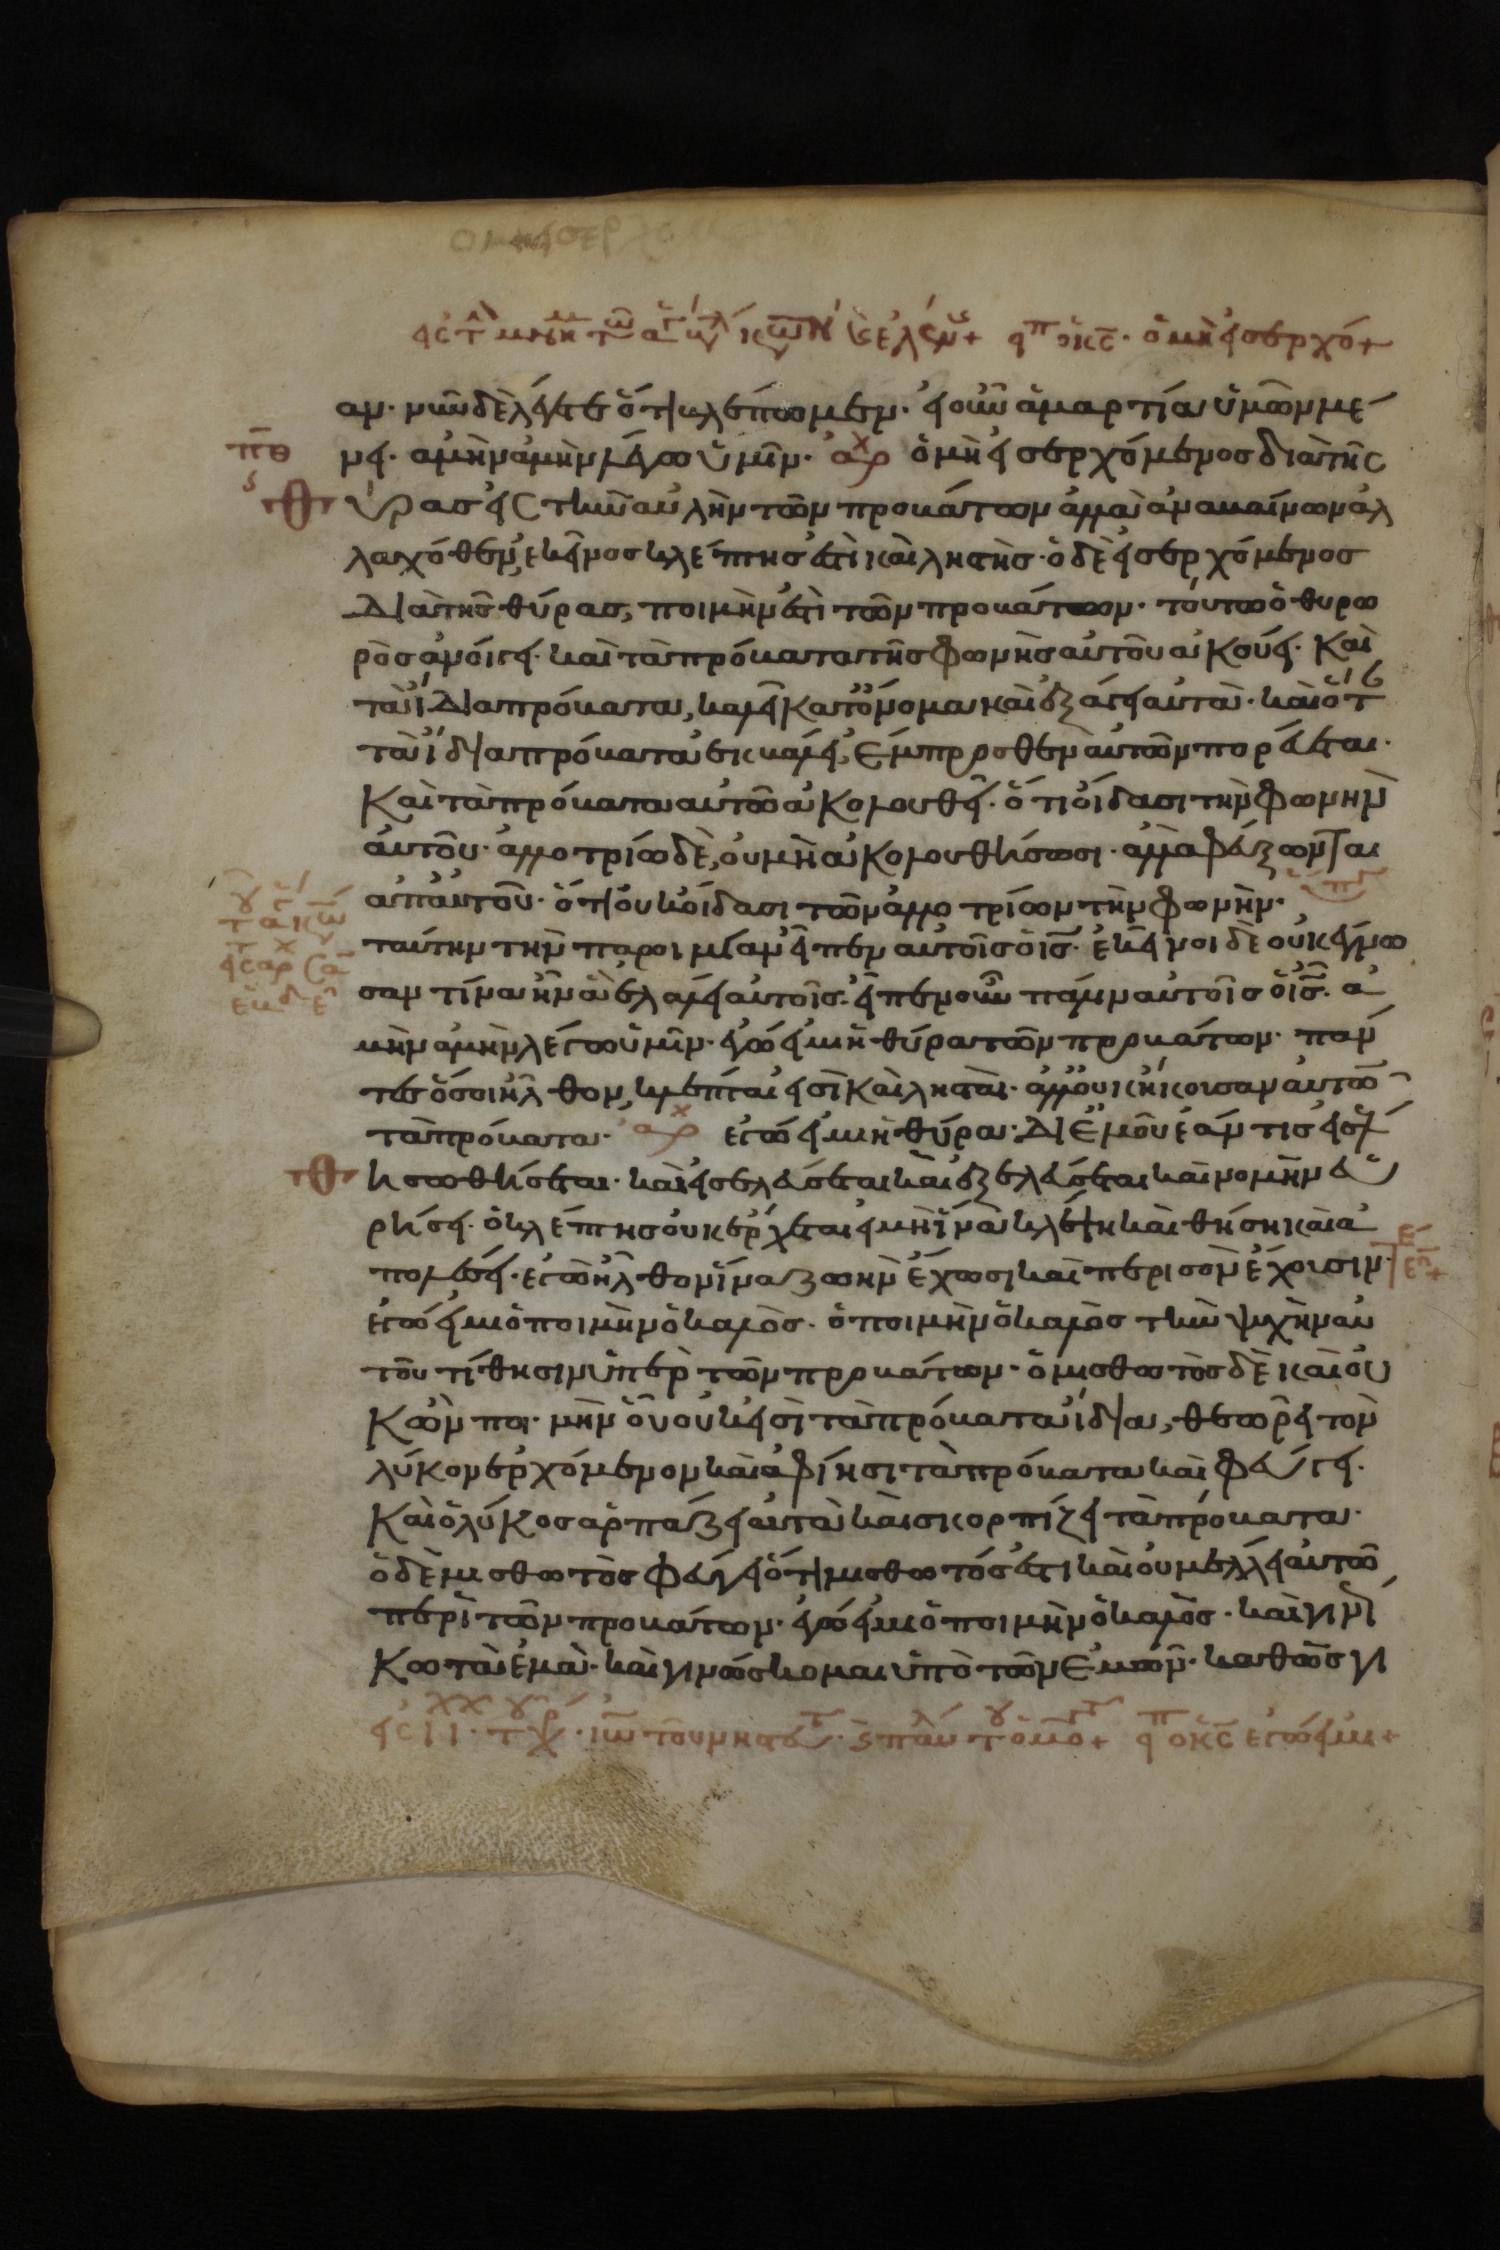 ὁ μὴ εἰσερχό
αν· νῦν δὲ λέγετε ὅτι βλέπομεν· ἡ οὖν ἁμαρτία ὑμῶν μέ
νει· ἀμὴν ἀμὴν λέγω ὑμῖν· αρχ ὁ μὴ εἰσερχόμενος διὰ τῆς
πθ
θύρας εἰς τὴν αὐλὴν τῶν προβάτων ἀλλὰ ἀναβαίνων ἀλ
λαχόθεν, ἐκεῖνος κλέπτης ἐστὶ καὶ ληστής· ὁ δὲ εἰσερχόμενος
διὰ τῆς θύρας, ποιμήν ἐστι τῶν προβάτων· τούτω ὁ θυρω
ρὸς ἀνοίγει· καὶ τὰ πρόβατα τῆς φωνῆς αὐτοῦ ἀκούει· καὶ
τὰ ἴδια πρόβατα, καλεῖ κατ' ὄνομα καὶ ἐξάγει αὐτά· καὶ ὅτ
τὰ ἴδια πρόβατα ἐκβάλη, ἔμπροσθεν αὐτῶν πορεύεται·
καὶ τὰ πρόβατα αὐτῶ ἀκολουθεῖ· ὅτι οἴδασι τὴν φωνὴν
αὐτοῦ· ἀλλοτρίω δὲ, οὐ μὴ ἀκολουθήσωσι· ἀλλὰ φεύξονται
ἀπ' αὐτοῦ· ὅτι οὐκ οἴδασι τῶν ἀλλοτρίων τὴν φωνήν·
ταύτην τὴν παροιμίαν εἶπεν αὐτοῖς ὁ ις· ἐκεῖνοι δὲ οὐκ ἔγνω
σαν τίνα ἦν ἃ ἐλάλει αὐτοῖς· εἶπεν οὖν πάλιν αὐτοῖς ὁ ις· ἀ
μὴν ἀμὴν λέγω ὑμῖν· ἐγώ εἰμι ἡ θύρα τῶν προβάτων· πάν
τες ὅσοι ἦλθον, κλέπται εἰσὶ καὶ λησταί· ἀλλ' οὐκ ἤκουσαν αὐτῶ
τὰ πρόβατα· αρχ ἐγώ εἰμι ἡ θύρα· δι' ἐμοῦ ἐάν τις εἰσέλ
θη σωθήσεται· καὶ εἰσελεύσεται καὶ ἐξελεύσεται καὶ νομὴν εὑ
ρήσει· ὁ κλέπτης οὐκ ἔρχεται εἰ μὴ ἵνα κλέψη καὶ θύση καὶ ἀ
πολέσει· ἐγὼ ἦλθον ἵνα ζωὴν ἔχωσι καὶ περισὸν ἔχουσιν·
ἐγώ εἰμι ὁ ποιμὴν ὁ καλός· ὁ ποιμὴν ὁ καλὸς τὴν ψυχὴν αὐ
τοῦ τίθησιν ὑπὲρ τῶν προβάτων· ὁ μισθωτὸς δὲ καὶ οὐ
κ ὢν ποιμὴν οὗ οὐκ εἰσὶ τὰ πρόβατα ἴδια, θεωρεῖ τὸν
λύκον ἐρχόμενον καὶ ἀφίησι τὰ πρόβατα καὶ φεύγει·
καὶ ὁ λύκος ἁρπάζει αὐτὰ καὶ σκορπίζει τὰ πρόβατα·
ὁ δὲ μισθωτὸς φεύγει ὅτι μισθωτός ἐστι καὶ οὐ μέλλει αὐτῶ
περὶ τῶν προβάτων· ἐγώ εἰμι ὁ ποιμὴν ὁ καλός· καὶ γινώ
σκω τὰ ἐμὰ· καὶ γινώσκομαι ὑπὸ τῶν ἐμῶν· καθὼς γι
εἶπ ὁ κς ἐγώ εἰμι